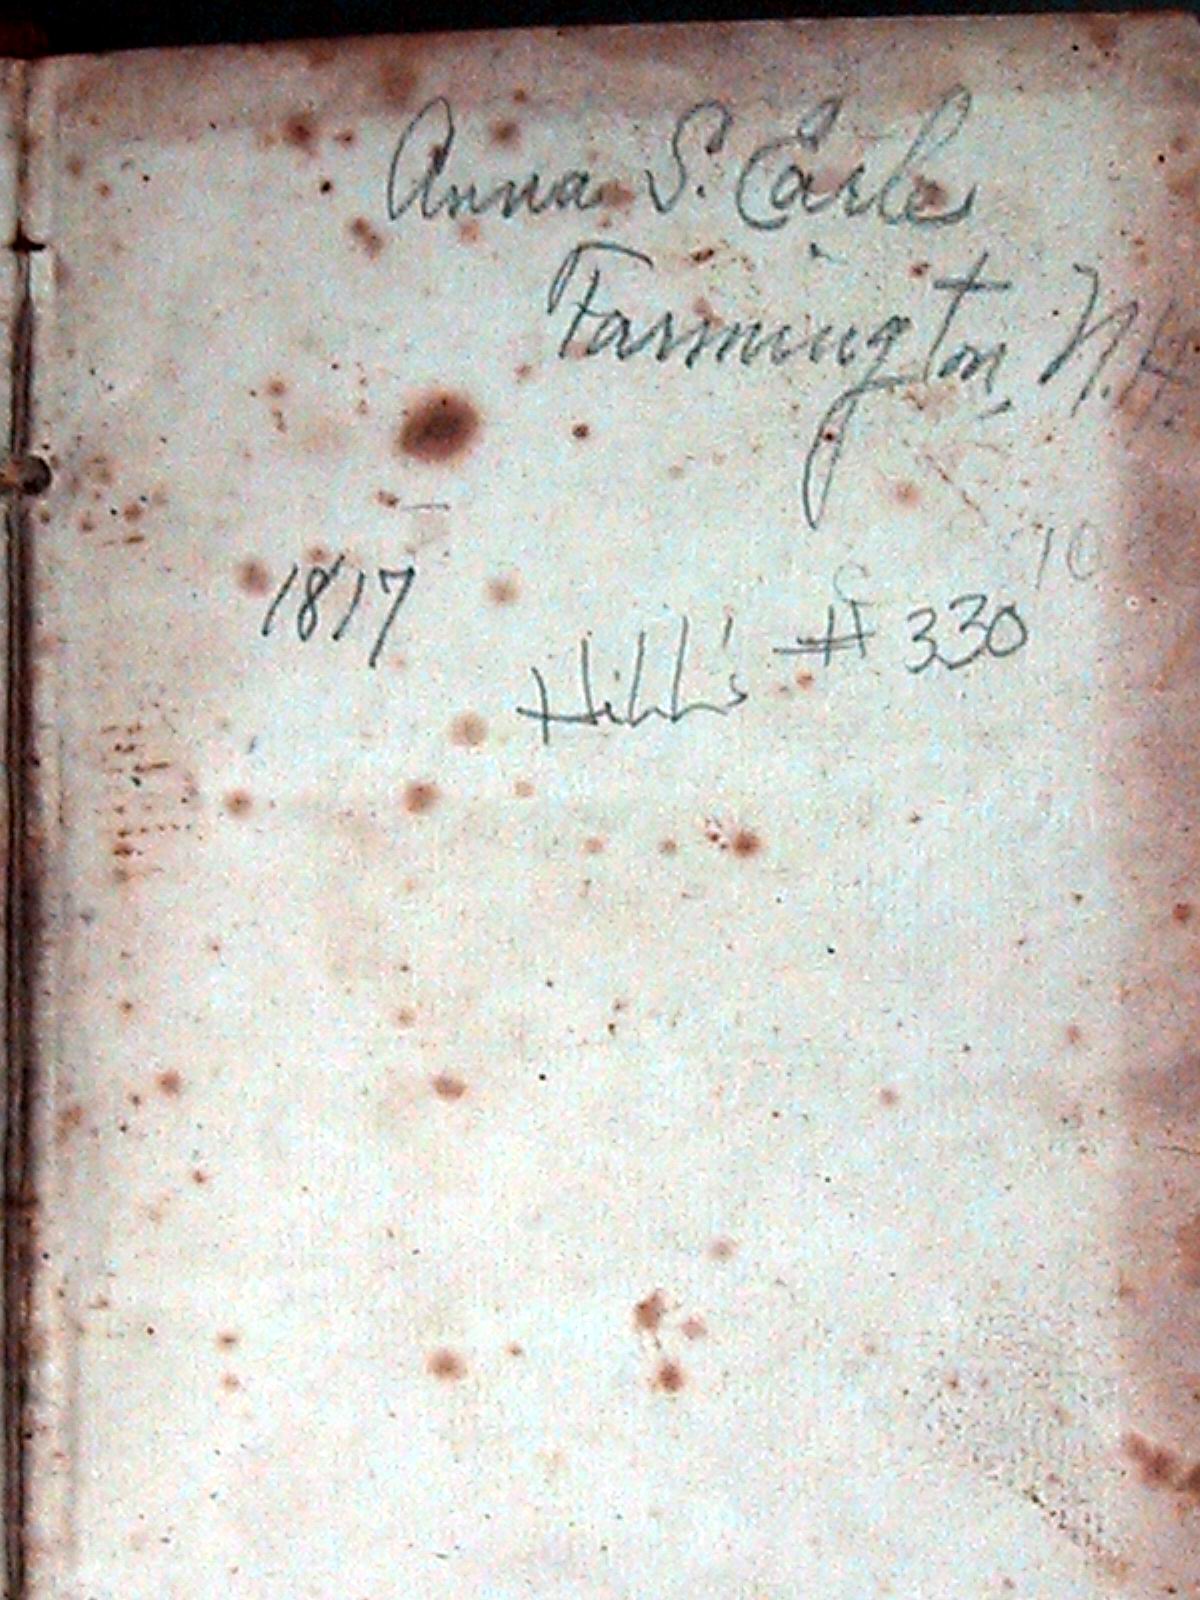 Anna S. Earle
Farmington, N.H.
10
1817
Hill's # 330